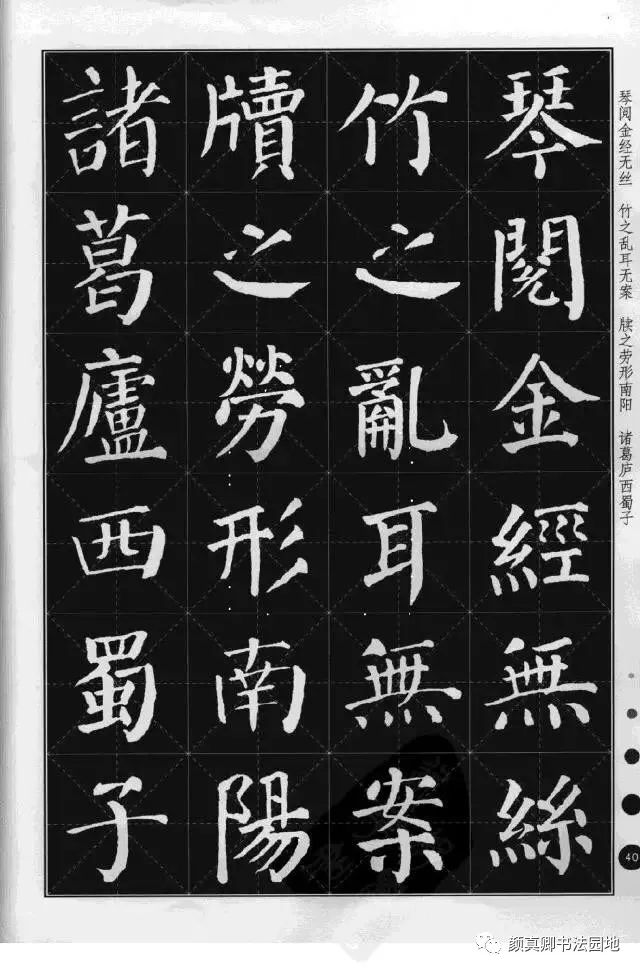 琴閱金經無絲
竹之亂耳無案
牘之勞形南陽
諸葛廬西蜀子
琴阅金经无丝　竹之乱耳无案　牍之劳形南阳　诸葛庐西蜀子
40
颜真卿书法园地